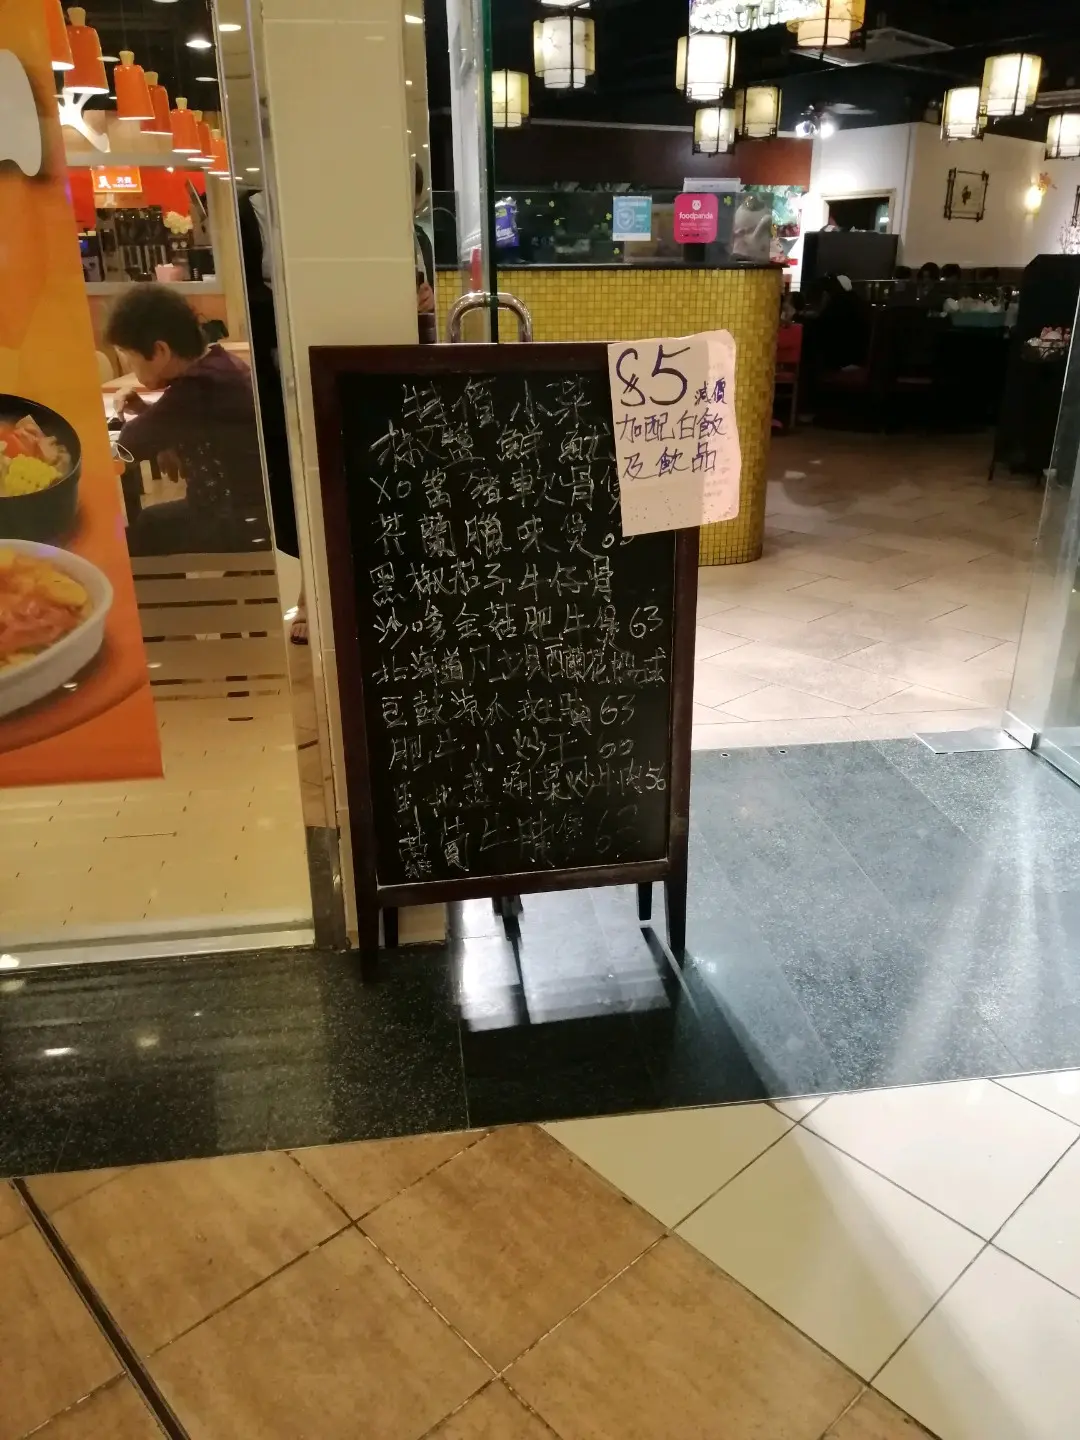 外賣
foodpanda
$5 減價
加配白飯
及飲品
特價小菜
椒鹽鮮魷
XO醬豬軟骨
芥蘭臘味煲
黑椒茄子牛仔骨
沙嗲金菇肥牛煲 63
北海道
豆鼓涼瓜斑 63
肥牛小炒王 60
菜炒 肉 56
蘿蔔牛腩煲 63